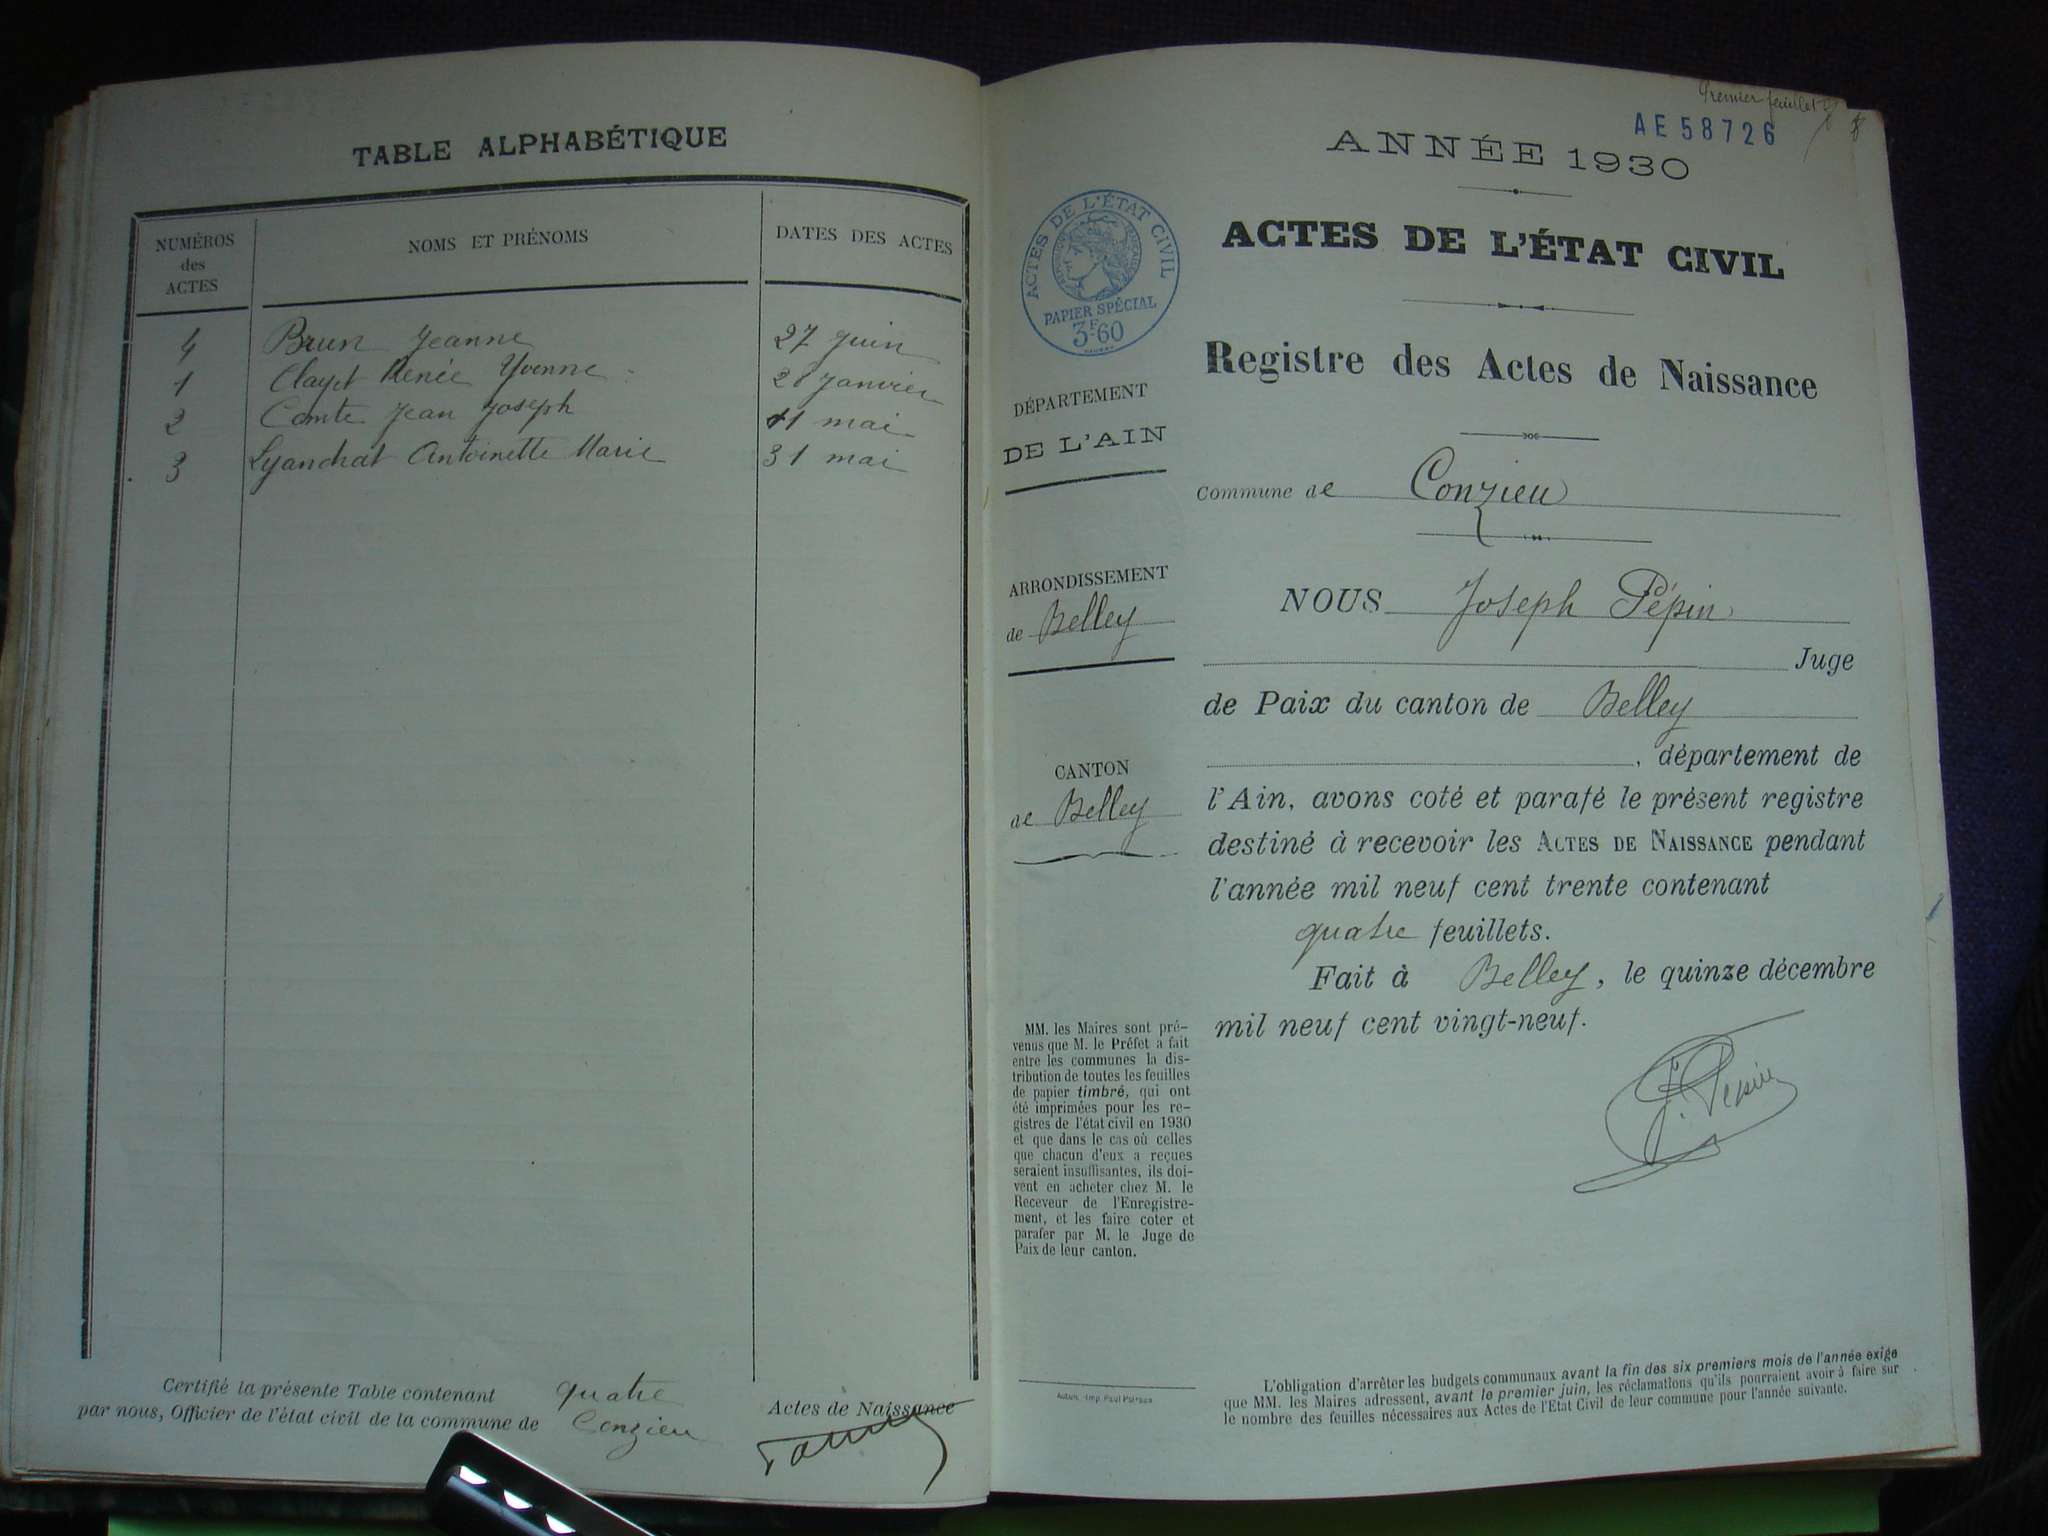 TABLE ALPHABÉTIQUE
NUMÉROS des ACTES NOMS ET PRÉNOMS DATES DES ACTES
4 Brun Jeanne 27 juin
1 Clayet Renée Yvonne 28 janvier
2 Comte Jean Joseph 11 mai
3 Lyandrat Antoinette Marie 31 mai
Certifié la présente Table contenant quatre Actes de Naissance
par nous, Officier de l'état civil de la commune de Conzieu
Premier feuillet
AE 58726
ANNÉE 1930
ACTES DE L'ÉTAT CIVIL
ACTES DE L'ÉTAT CIVIL
RÉPUBLIQUE FRANÇAISE
PAPIER SPÉCIAL
3F60
Registre des Actes de Naissance
DÉPARTEMENT
DE L'AIN
Commune de Conzieu
ARRONDISSEMENT
de Belley
CANTON
de Belley
NOUS Joseph Pépin
Juge
de Paix du canton de Belley
, département de
l'Ain, avons coté et parafé le présent registre
destiné à recevoir les ACTES DE NAISSANCE pendant
l'année mil neuf cent trente contenant
quatre feuillets.
Fait à Belley, le quinze décembre
mil neuf cent vingt-neuf.
J. Pépin
MM. les Maires sont pré-
venus que M. le Préfet a fait
entre les communes la dis-
tribution de toutes les feuilles
de papier timbré, qui ont
été imprimées pour les re-
gistres de l'état civil en 1930
et que dans le cas où celles
que chacun d'eux a reçues
seraient insuffisantes, ils doi-
vent en acheter chez M. le
Receveur de l'Enregistre-
ment, et les faire coter et
parafer par M. le Juge de
Paix de leur canton.
L'obligation d'arrêter les budgets communaux avant la fin des six premiers mois de l'année exige
que MM. les Maires adressent, avant le premier juin, les réclamations qu'ils pourraient avoir à faire sur
le nombre des feuilles nécessaires aux Actes de l'Etat Civil de leur commune pour l'année suivante.